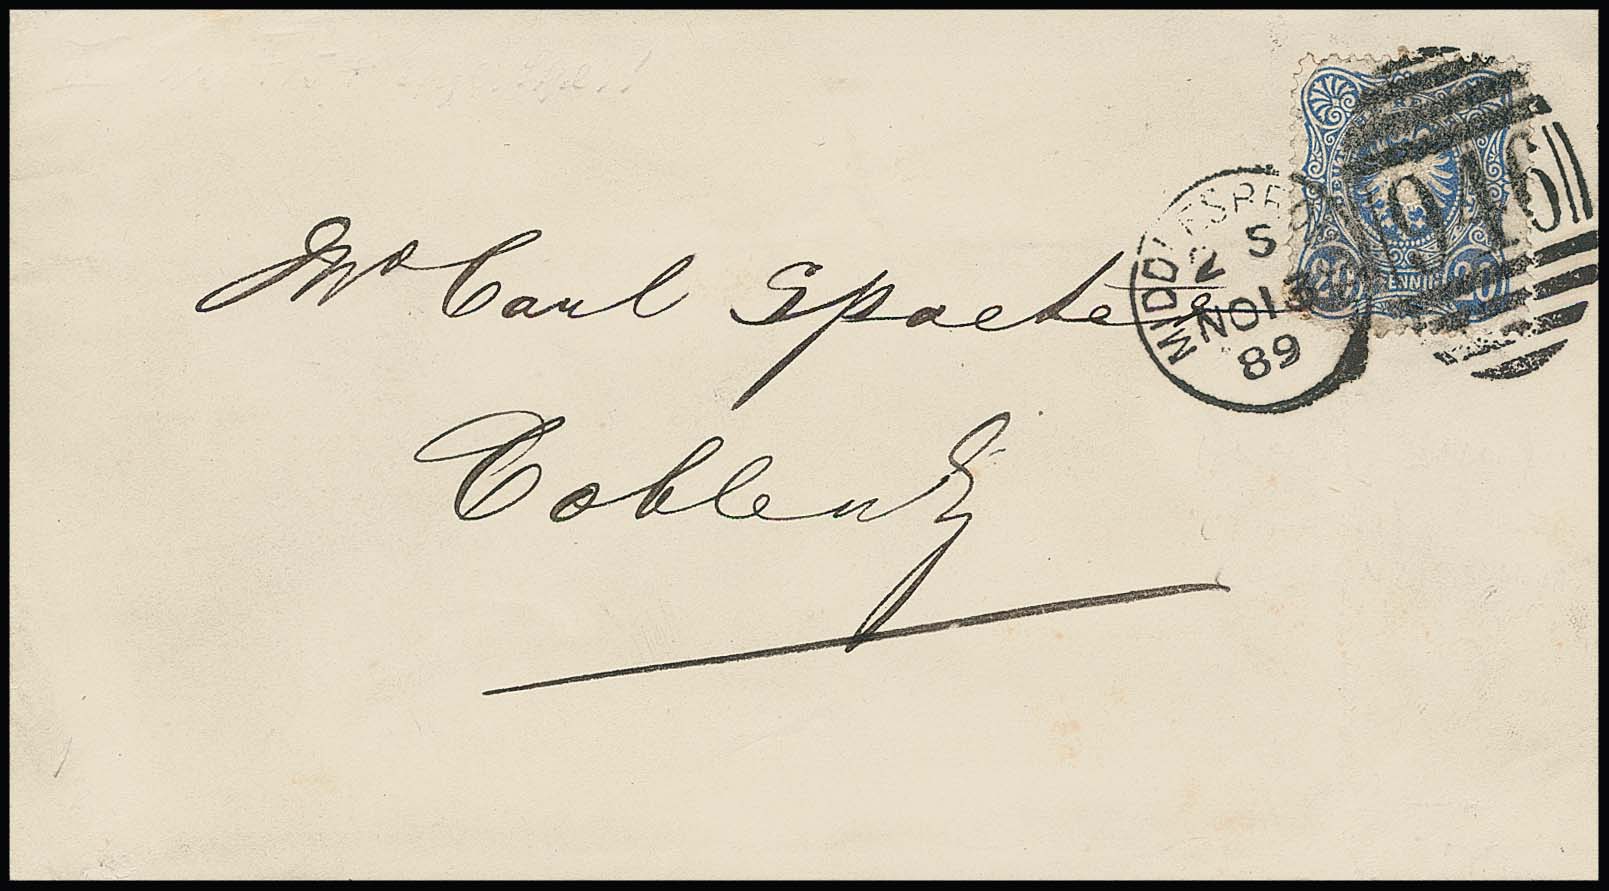 Mr Carl Spaeter
Coblenz
MIDDLESBRO
2 S
NO 13
89
946
20 PFENNIG 20